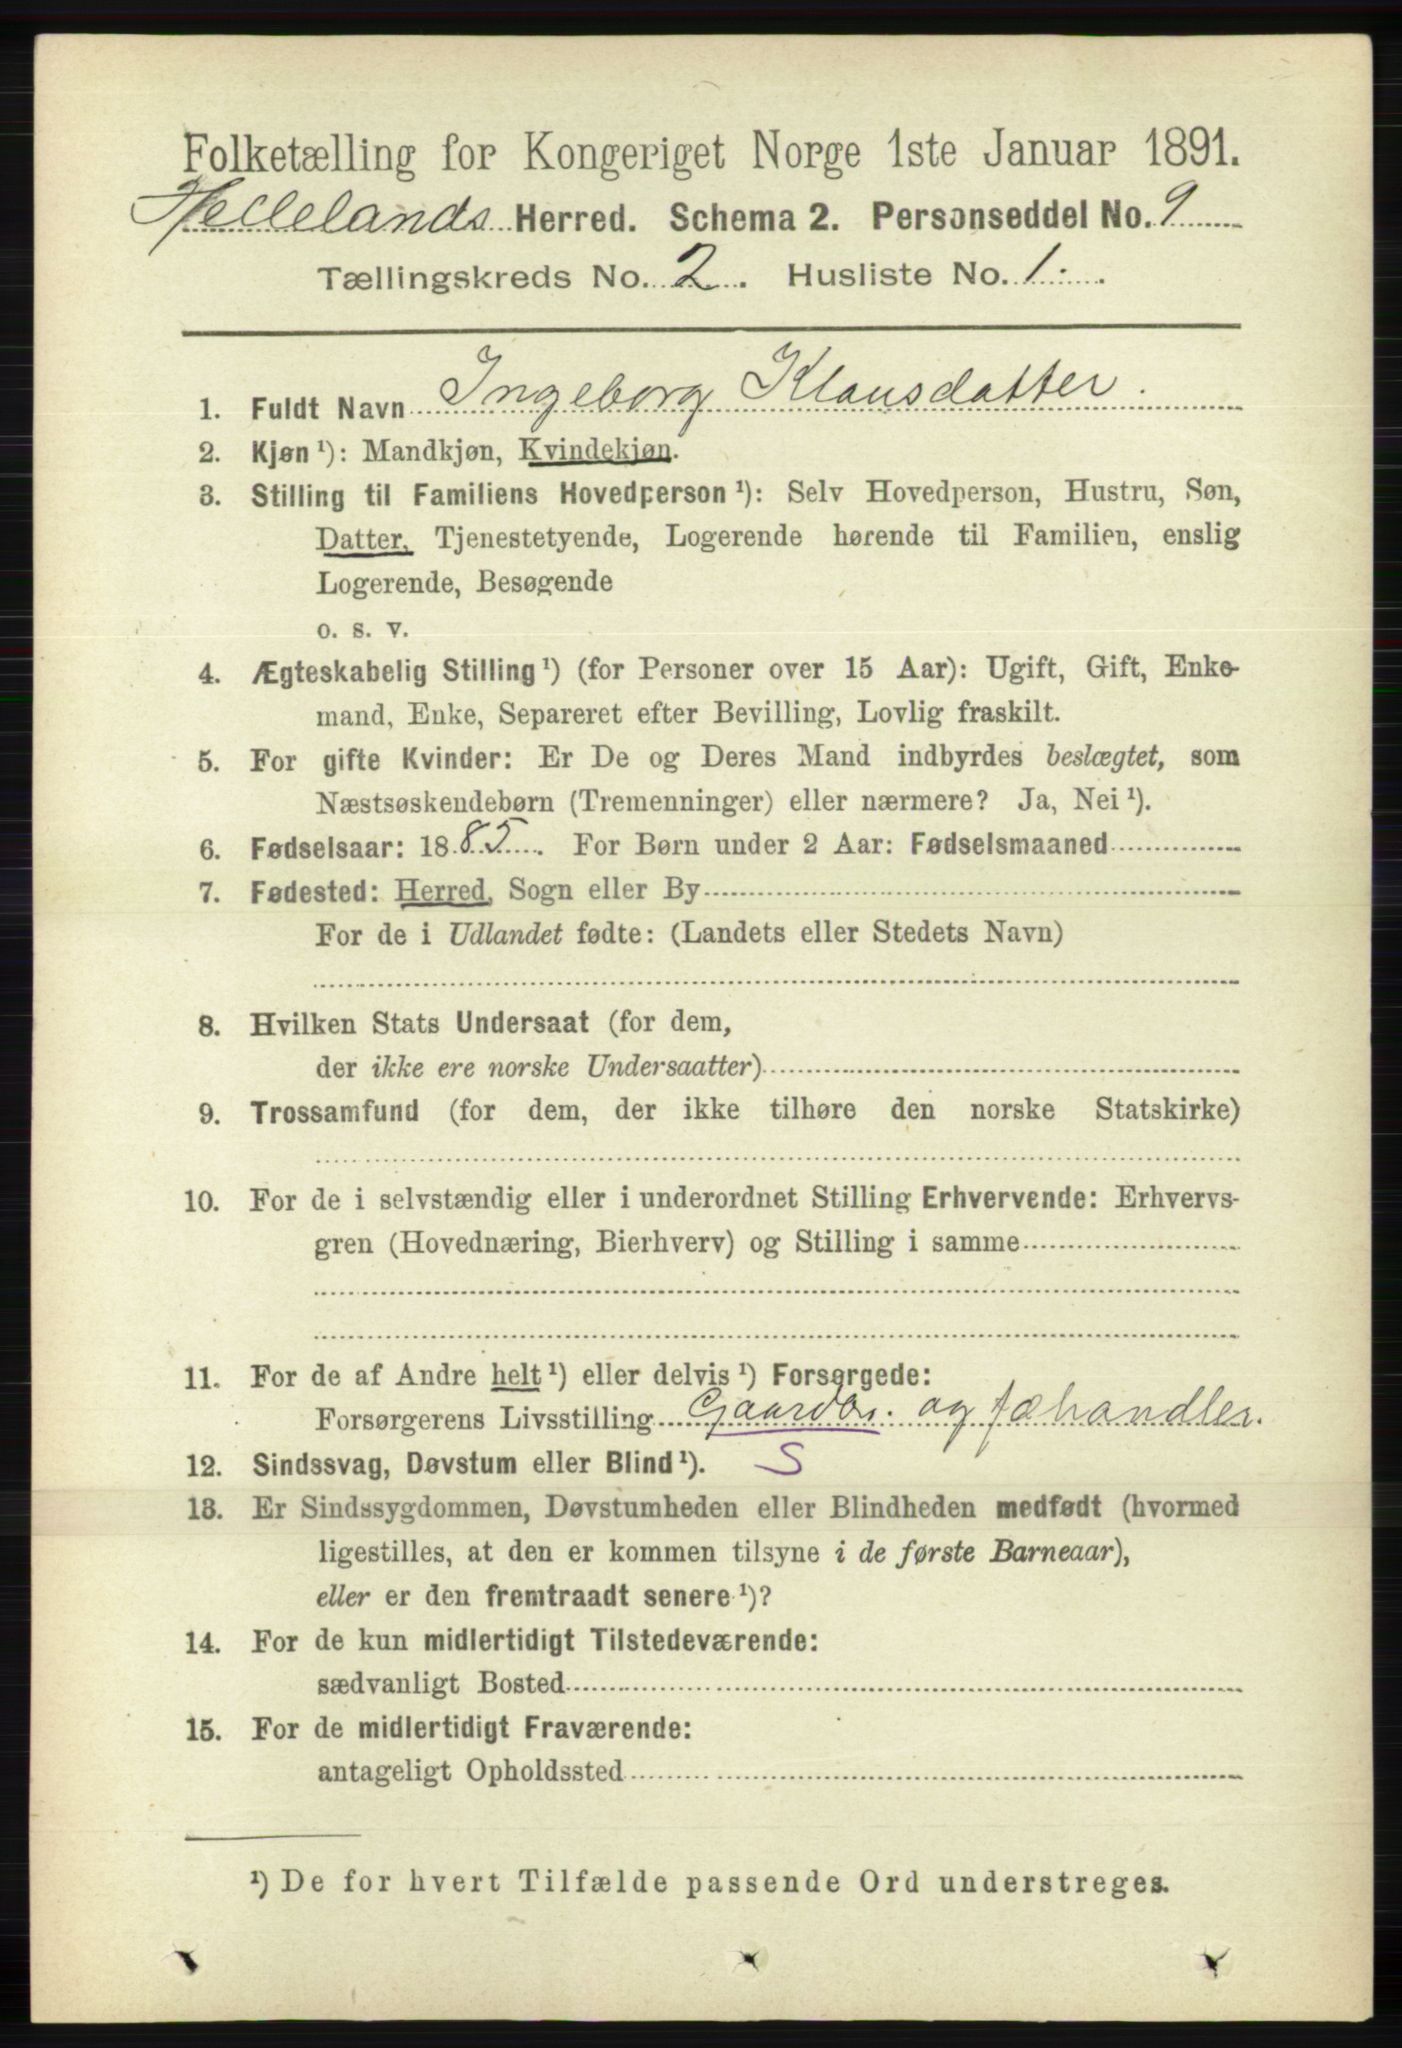 Folketælling for Kongeriget Norge 1ste Januar 1891.
Hellelands Herred. Schema 2. Personseddel No. 9
Tællingskreds No. 2. Husliste No. 1.
1. Fuldt Navn Ingeborg Klausdatter.
2. Kjøn ¹): Mandkjøn, Kvindekjøn.
3. Stilling til Familiens Hovedperson ¹): Selv Hovedperson, Hustru, Søn,
Datter, Tjenestetyende, Logerende hørende til Familien, enslig
Logerende, Besøgende
o. s. v.
4. Ægteskabelig Stilling ¹) (for Personer over 15 Aar): Ugift, Gift, Enke-
mand, Enke, Separeret efter Bevilling, Lovlig fraskilt.
5. For gifte Kvinder: Er De og Deres Mand indbyrdes beslægtet, som
Næstsøskendebørn (Tremenninger) eller nærmere? Ja, Nei ¹).
6. Fødselsaar: 1885. For Børn under 2 Aar: Fødselsmaaned
7. Fødested: Herred, Sogn eller By
For de i Udlandet fødte: (Landets eller Stedets Navn)
8. Hvilken Stats Undersaat (for dem,
der ikke ere norske Undersaatter)
9. Trossamfund (for dem, der ikke tilhøre den norske Statskirke)
10. For de i selvstændig eller i underordnet Stilling Erhvervende: Erhvervs-
gren (Hovednæring, Bierhverv) og Stilling i samme
11. For de af Andre helt ¹) eller delvis ¹) Forsørgede:
Forsørgerens Livsstilling Gaardbr. og fæhandler.
12. Sindssvag, Døvstum eller Blind ¹). S
13. Er Sindssygdommen, Døvstumheden eller Blindheden medfødt (hvormed
ligestilles, at den er kommen tilsyne i de første Barneaar),
eller er den fremtraadt senere ¹)?
14. For de kun midlertidigt Tilstedeværende:
sædvanligt Bosted
15. For de midlertidigt Fraværende:
antageligt Opholdssted
¹) De for hvert Tilfælde passende Ord understreges.